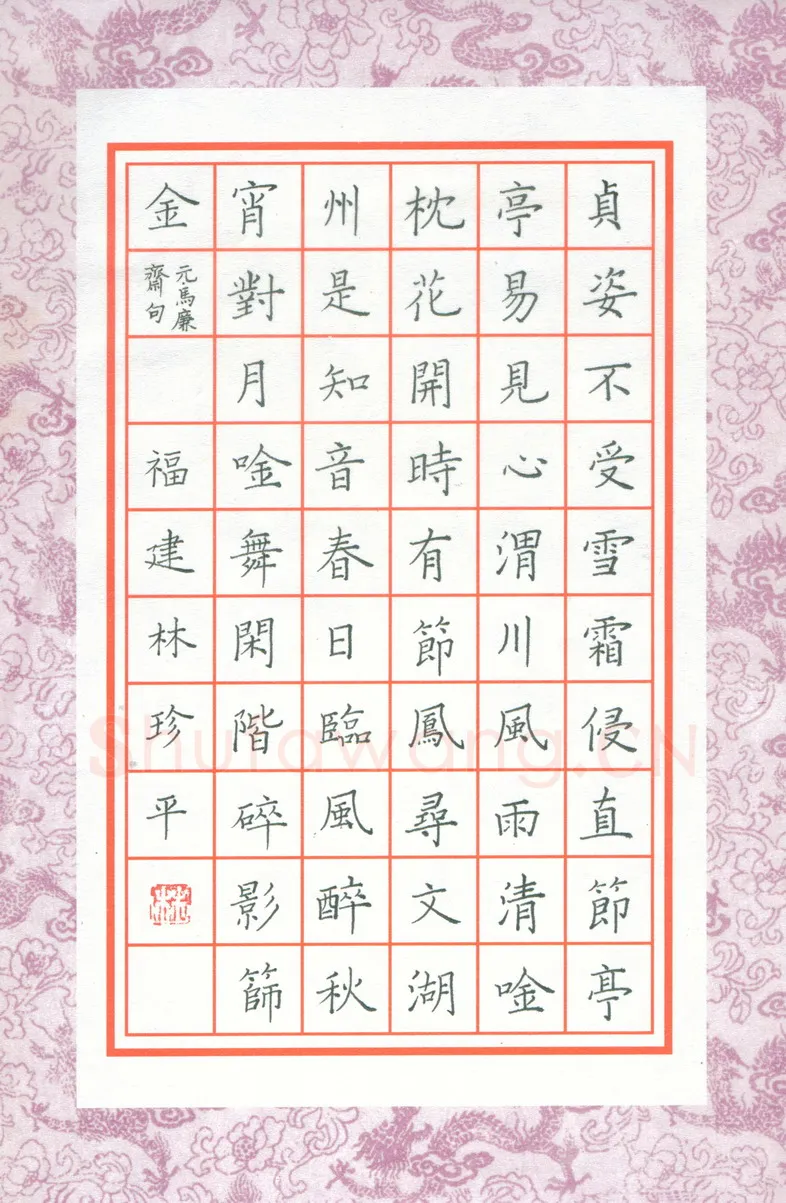 貞姿不受雪霜侵直節亭
亭易見心渭川風雨清唫
枕花開時有節鳳尋文湖
州是知音春日臨風醉秋
宵對月唫舞閑階碎影篩
金
元馬廉
齋句
福建林珍平
Shufawang.CN